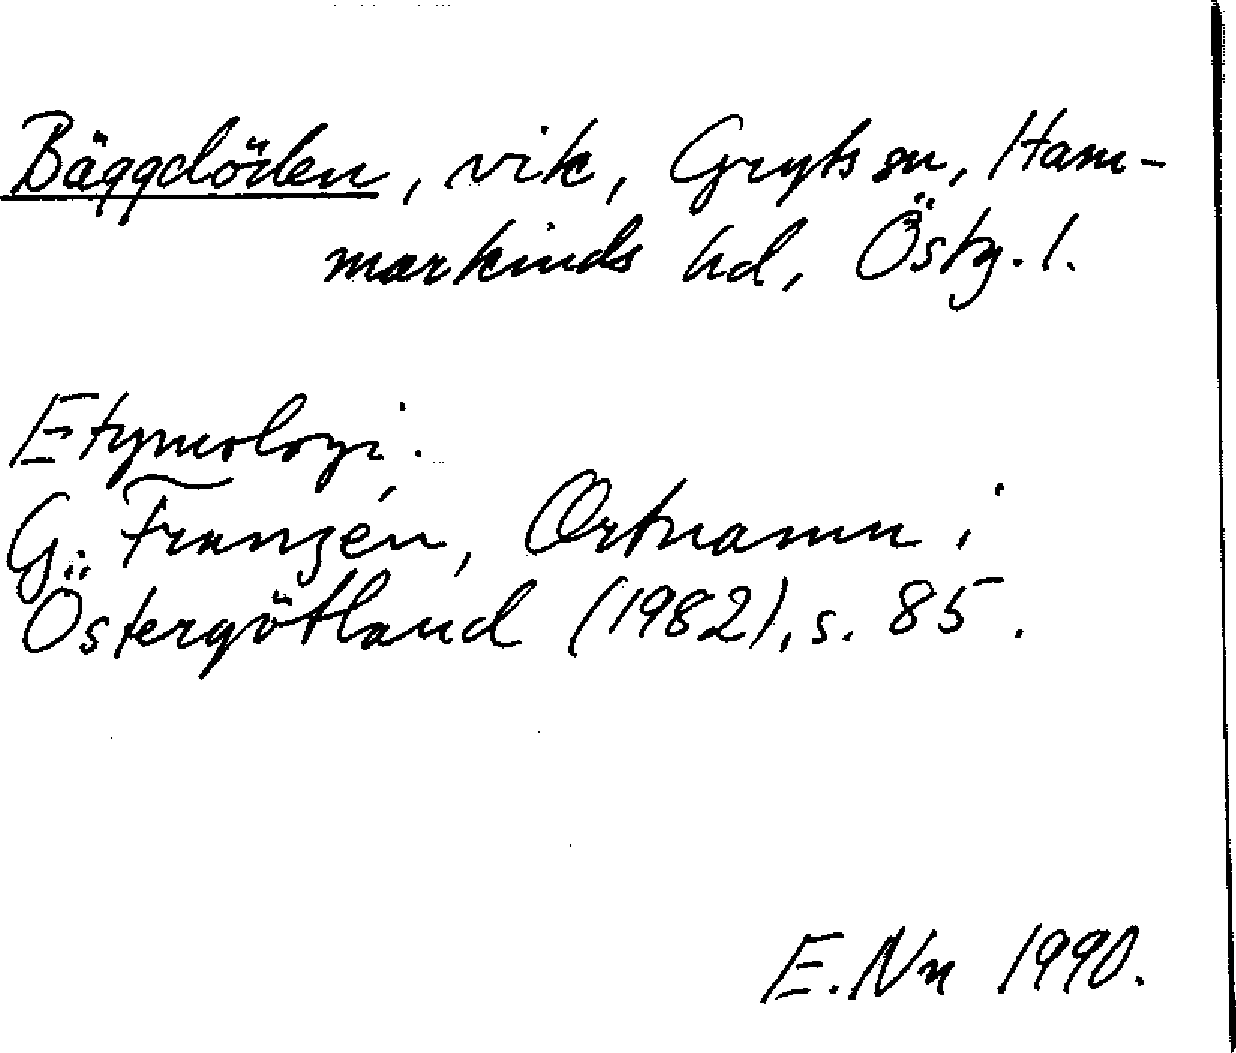 Bäggdösen, vik, Gryts sn, Ham-
markinds hd, Östg. l.
Etymologi.
G. Franzén, Ortnamn i
Östergötland (1982), s. 85.
E. Nn 1990.